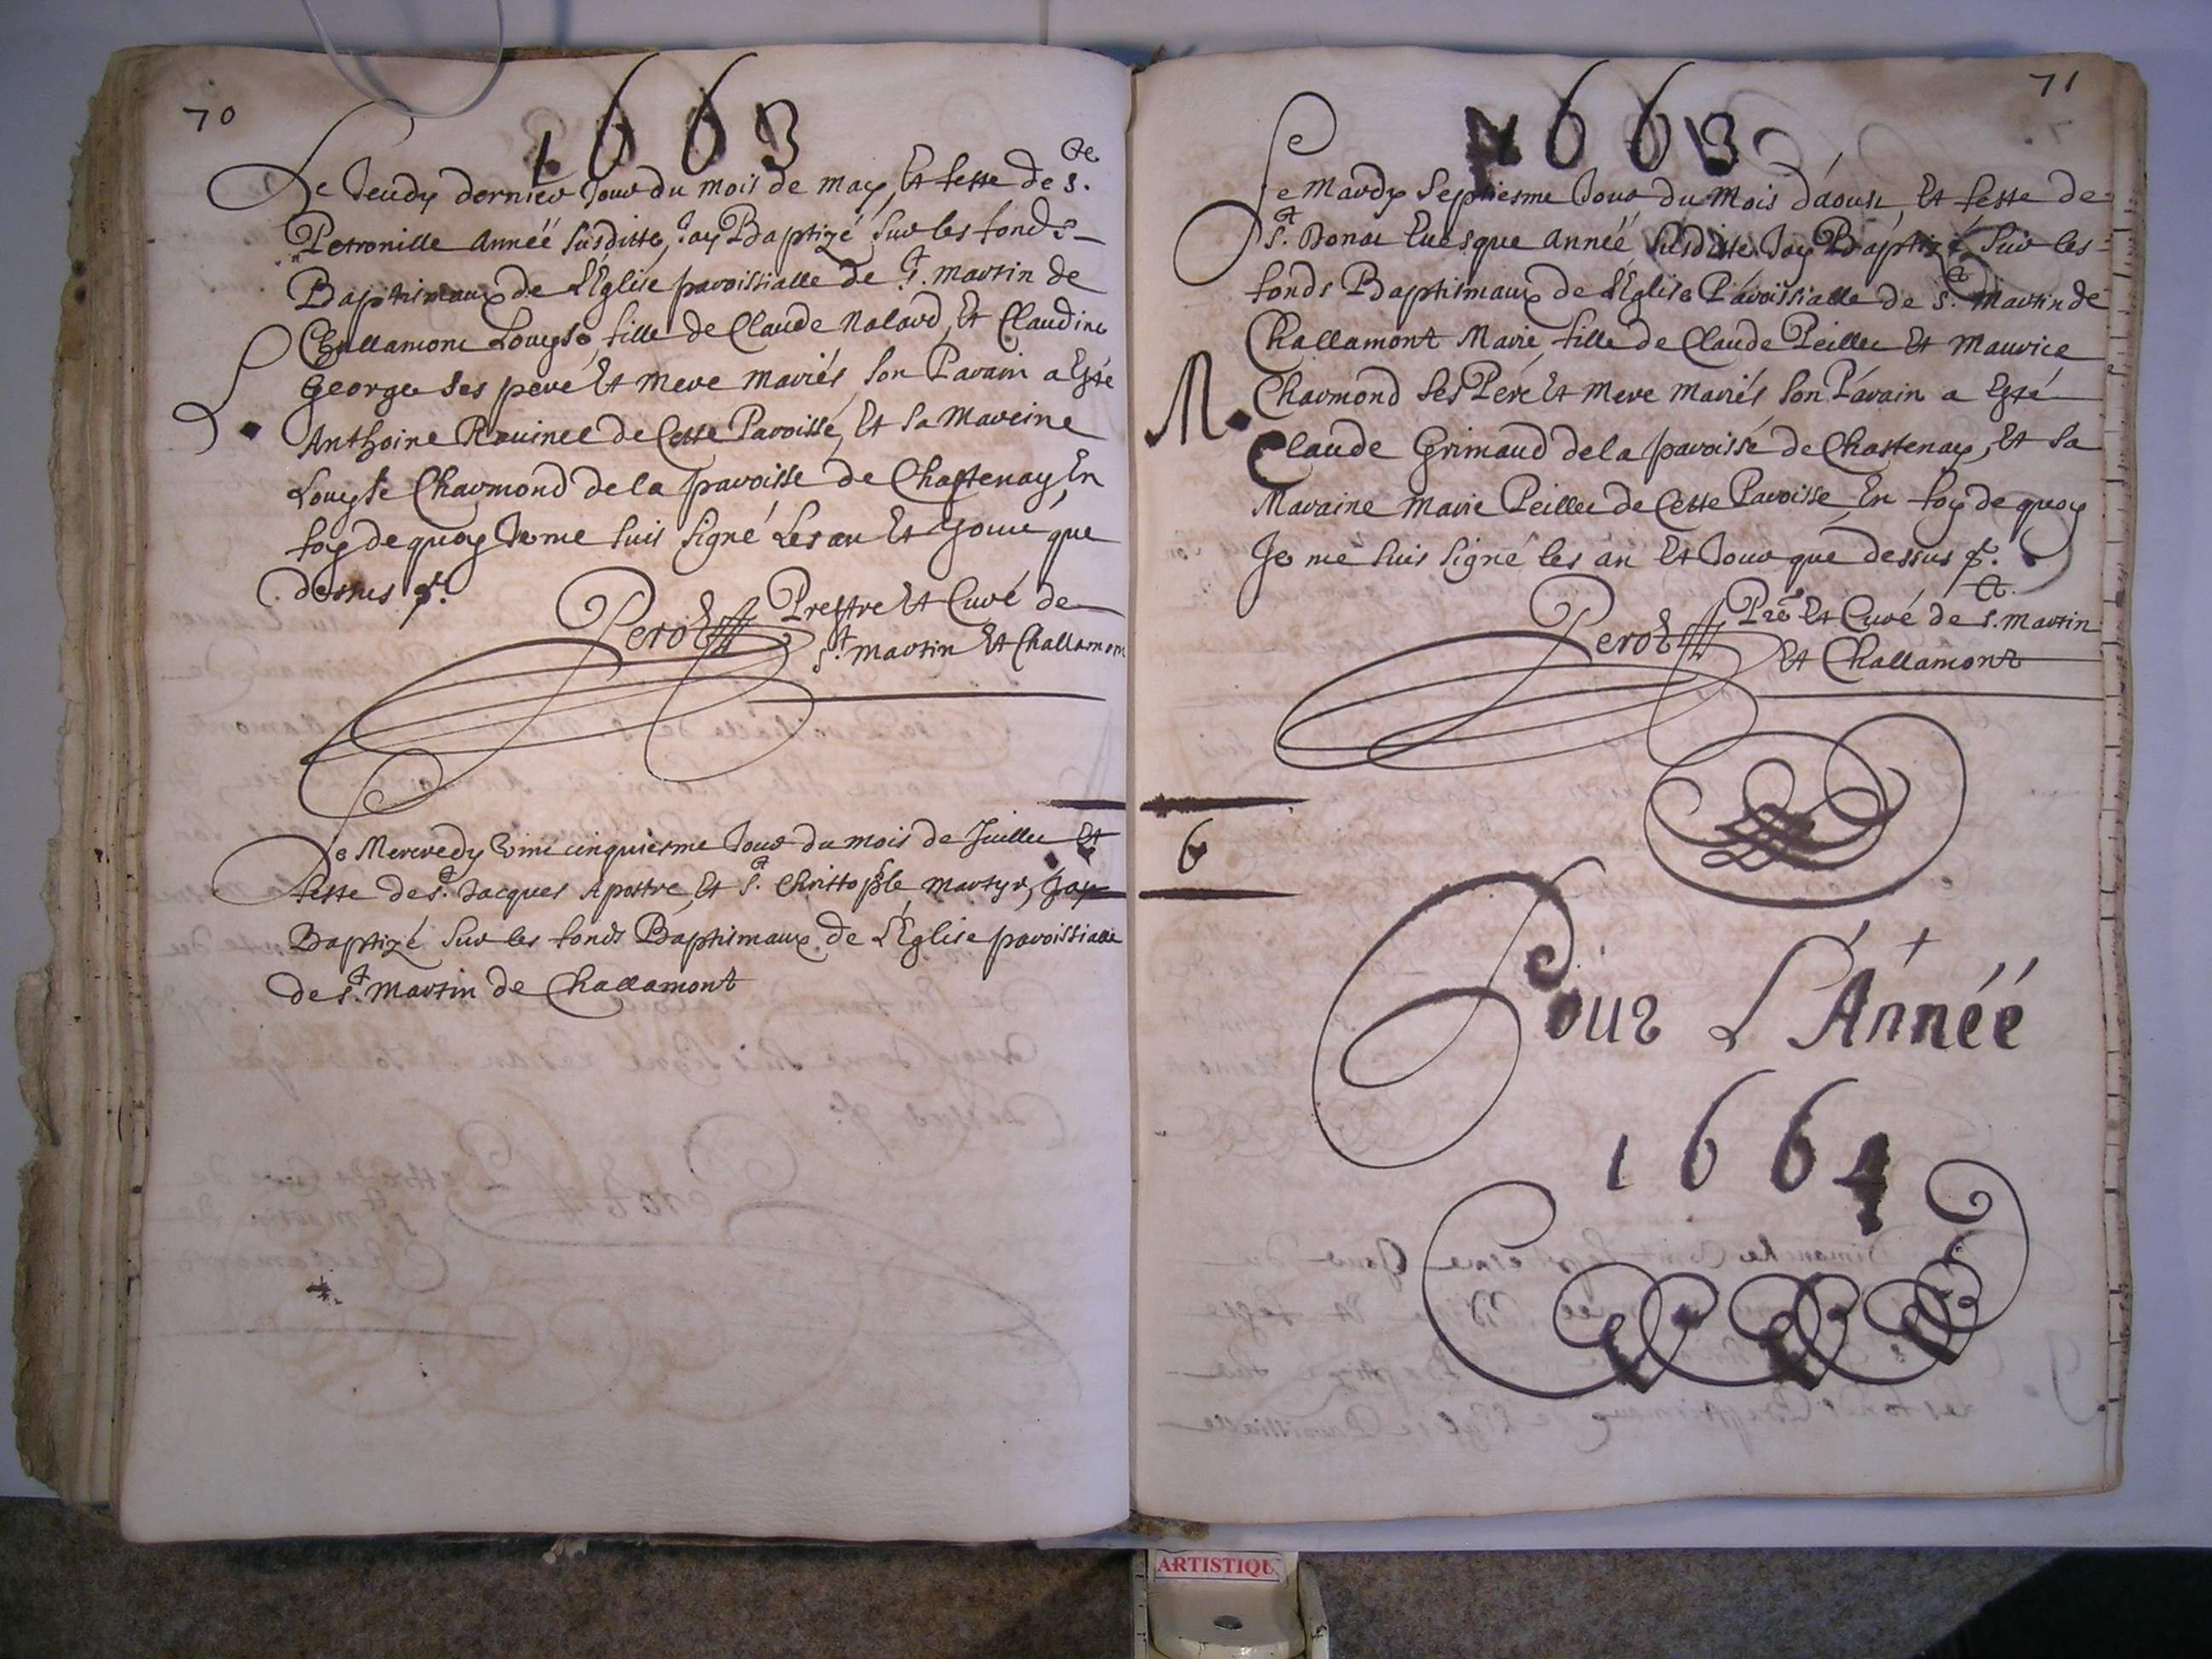 70
1663
Le Jeudy dernier Jour du mois de may, Et feste de S.te
Petronille Annéé susditte, J'ay Baptizé sur les fonds
Baptismaux de L'Eglise paroissialle de S.t martin de
Challamont Louyse, fille de Claude Nalard, Et Claudine
George ses peré Et mere mariés, son Parain a Esté
L.
Anthoine Ravinet de Cette Paroisse, Et sa Mareine
Louyse Charmond de la paroisse de Chastenay, En
foy de quoy Je me suis signé Les an Et Jour que
dessus
Perot Prestre Et Curé de
S.t martin Et Challamont
Le Mercredy vint cinquiesme Jour du mois de Juillet Et
feste de S.t Jacques Apostre, Et S.t Christophle, martyr, J'ay
Baptizé sur les fonds Baptismaux de L'Eglise paroissialle
de S.t Martin de Challamont
71
1663
Le Mardy septiesme Jour du Mois d'aoust, Et feste de
S.t Donat Evesque Annéé susditte J'ay Baptizé sur les
fonds Baptismaux de L'Eglise Paroissialle de S.t Martin de
Challamont Marie, fille de Claude Peillet Et Maurice
M.
Charmond ses Peré Et Mere mariés son Parain a Esté
Claude Grimaud de la paroisse de Chastenay, Et sa
Maraine Marie Peillet de Cette Paroisse, En foy de quoy
Je me suis signé les an Et Jour que dessus
Perot Pre Et Curé de S.t martin
Et Challamont
6
Pour L'Annéé
1664
ARTISTIQU